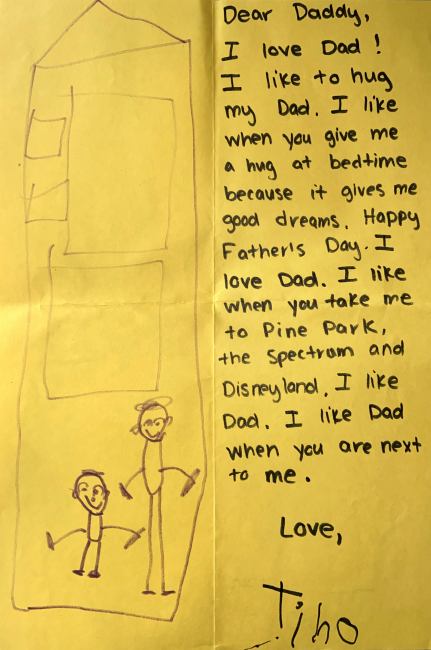 Dear Daddy,
I love Dad!
I like to hug
my Dad. I like
when you give me
a hug at bedtime
because it gives me
good dreams. Happy
Father's Day. I
love Dad. I like
when you take me
to Pine Park,
the Spectrum and
Disneyland. I like
Dad. I like Dad
when you are next
to me.
Love,
Tiho